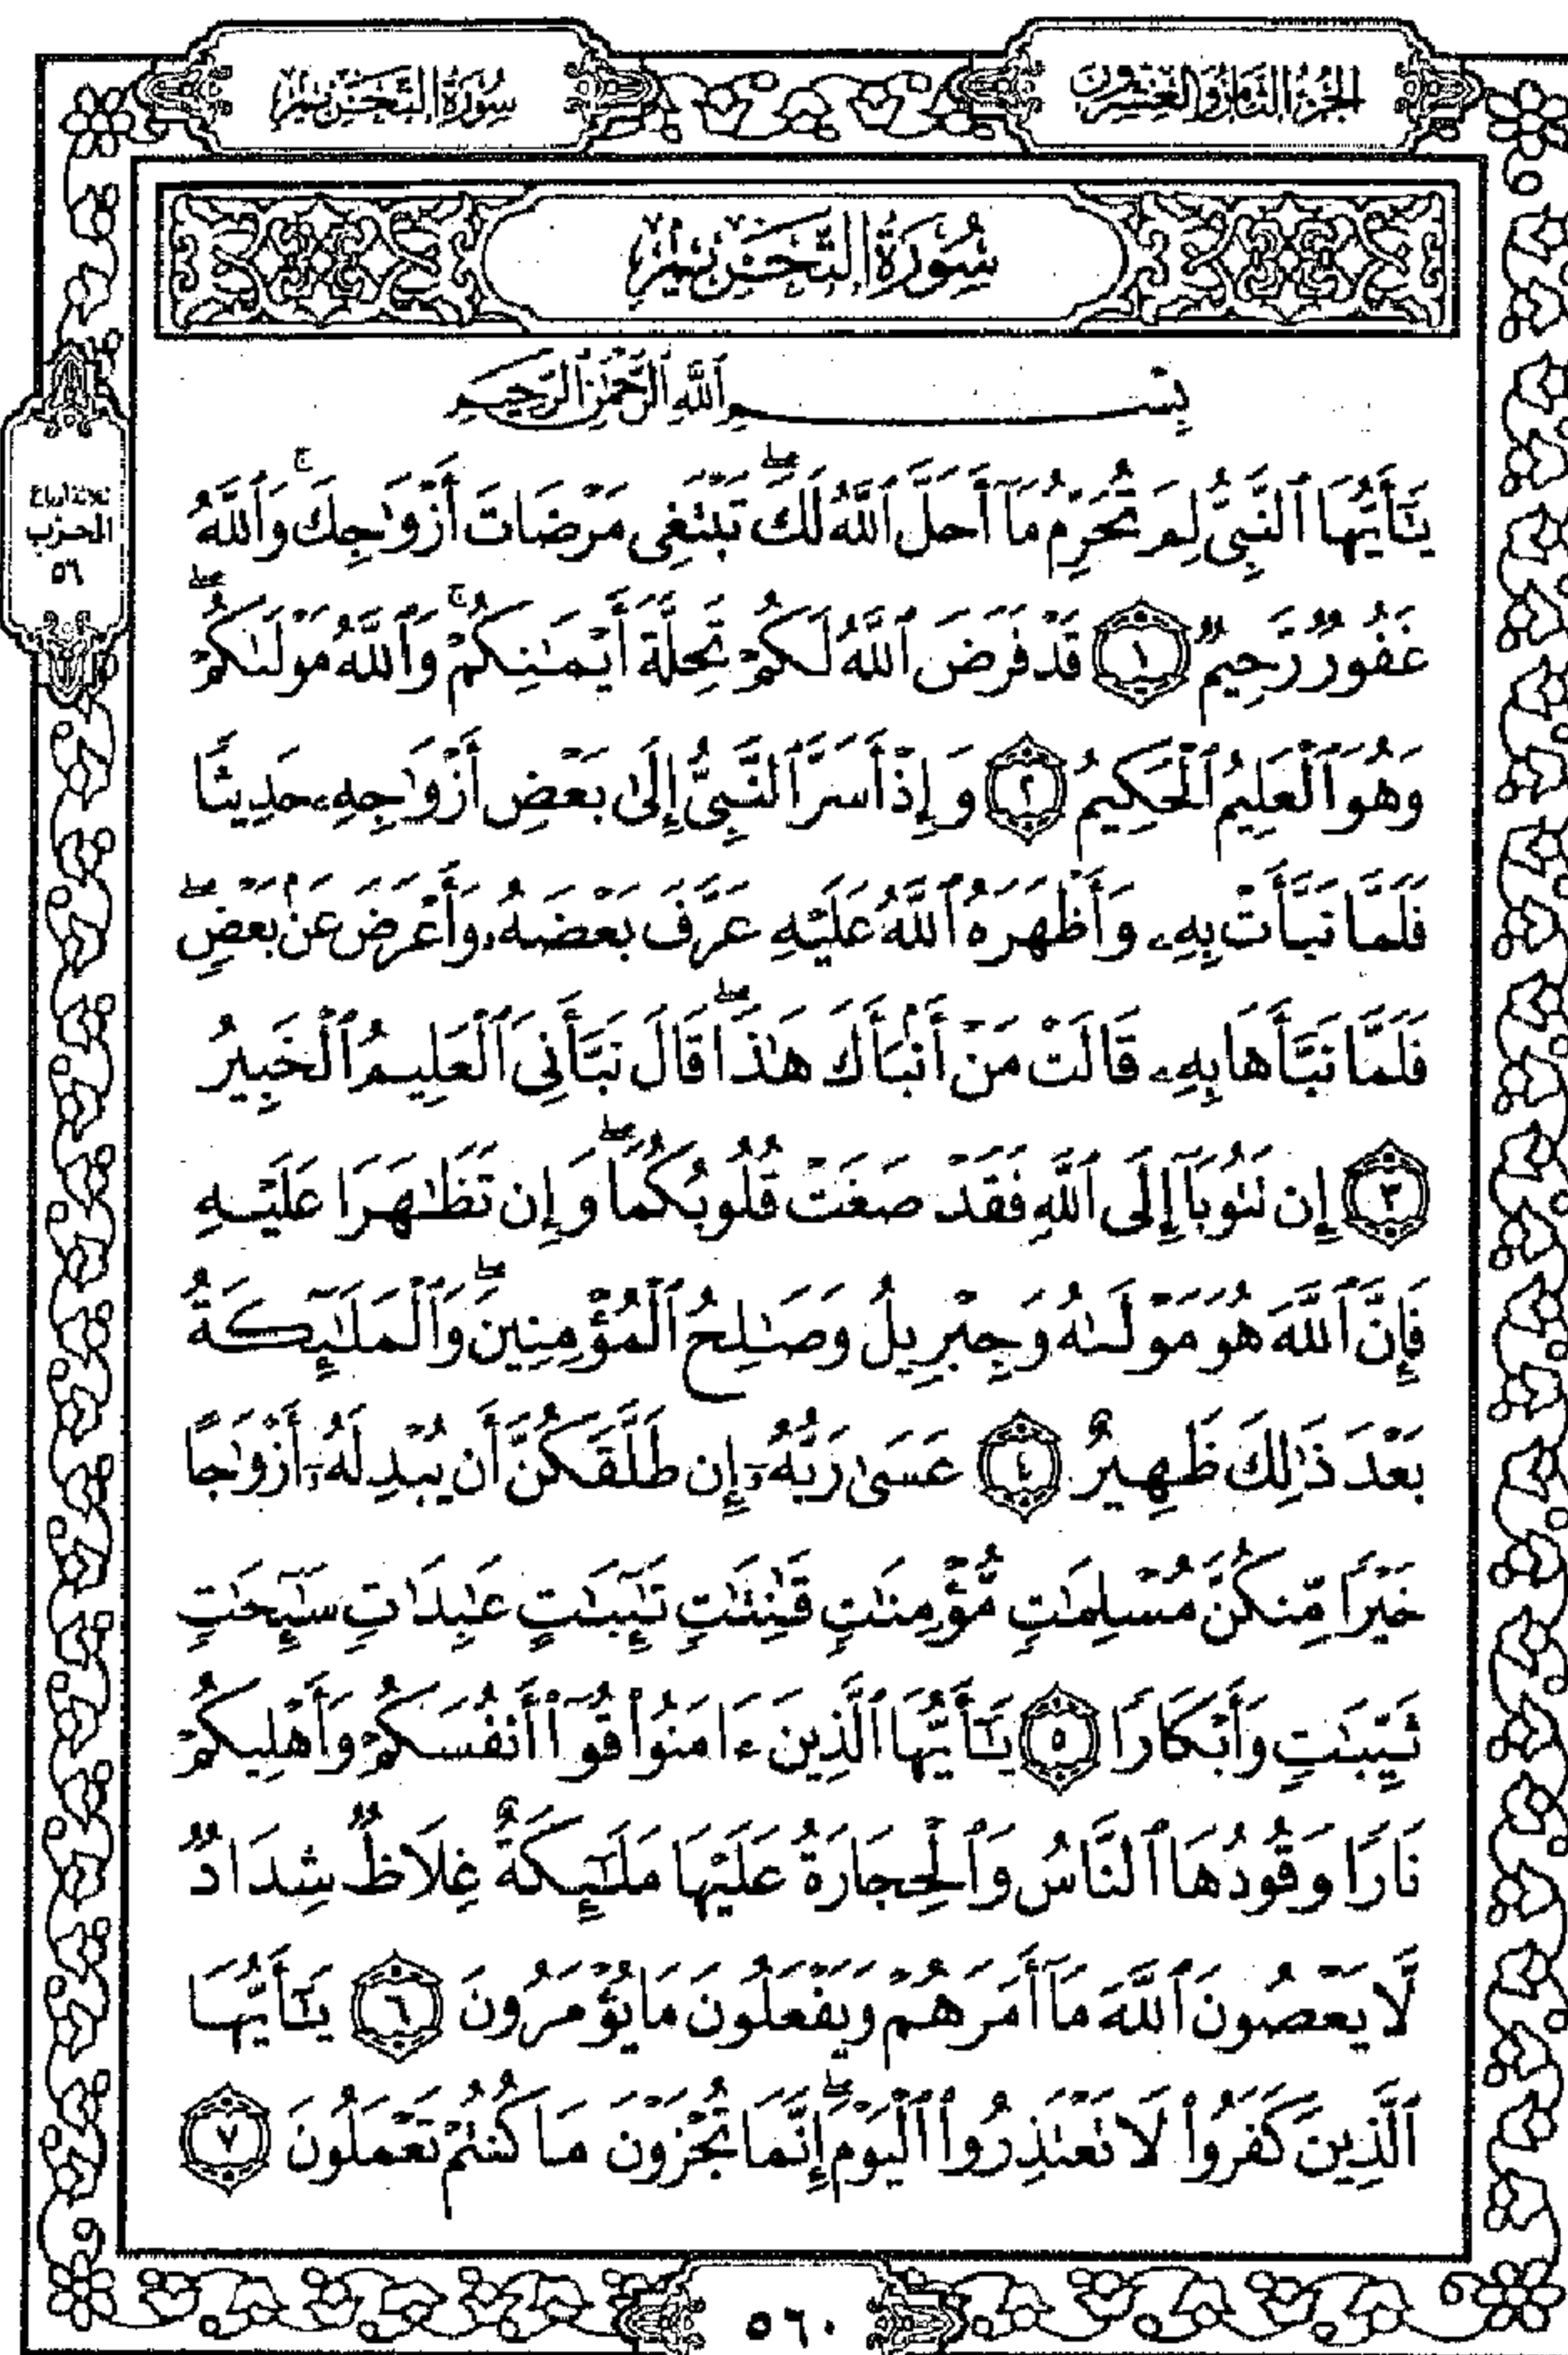 الجزء الثامن والعشرون
سورة التحريم
سُورَةُ التَّحْرِيمِ
بِسْمِ ٱللَّهِ ٱلرَّحْمَٰنِ ٱلرَّحِيمِ
يَٰٓأَيُّهَا ٱلنَّبِىُّ لِمَ تُحَرِّمُ مَآ أَحَلَّ ٱللَّهُ لَكَۖ تَبْتَغِى مَرْضَاتَ أَزْوَٰجِكَۚ وَٱللَّهُ
غَفُورٌ رَّحِيمٌ ١ قَدْ فَرَضَ ٱللَّهُ لَكُمْ تَحِلَّةَ أَيْمَٰنِكُمْۚ وَٱللَّهُ مَوْلَىٰكُمْۖ
وَهُوَ ٱلْعَلِيمُ ٱلْحَكِيمُ ٢ وَإِذْ أَسَرَّ ٱلنَّبِىُّ إِلَىٰ بَعْضِ أَزْوَٰجِهِۦ حَدِيثًا
فَلَمَّا نَبَّأَتْ بِهِۦ وَأَظْهَرَهُ ٱللَّهُ عَلَيْهِ عَرَّفَ بَعْضَهُۥ وَأَعْرَضَ عَنۢ بَعْضٍۖ
فَلَمَّا نَبَّأَهَا بِهِۦ قَالَتْ مَنْ أَنۢبَأَكَ هَٰذَاۖ قَالَ نَبَّأَنِىَ ٱلْعَلِيمُ ٱلْخَبِيرُ
٣ إِن تَتُوبَآ إِلَى ٱللَّهِ فَقَدْ صَغَتْ قُلُوبُكُمَاۖ وَإِن تَظَٰهَرَا عَلَيْهِ
فَإِنَّ ٱللَّهَ هُوَ مَوْلَىٰهُ وَجِبْرِيلُ وَصَٰلِحُ ٱلْمُؤْمِنِينَۖ وَٱلْمَلَٰٓئِكَةُ
بَعْدَ ذَٰلِكَ ظَهِيرٌ ٤ عَسَىٰ رَبُّهُۥٓ إِن طَلَّقَكُنَّ أَن يُبْدِلَهُۥٓ أَزْوَٰجًا
خَيْرًا مِّنكُنَّ مُسْلِمَٰتٍ مُّؤْمِنَٰتٍ قَٰنِتَٰتٍ تَٰٓئِبَٰتٍ عَٰبِدَٰتٍ سَٰٓئِحَٰتٍ
ثَيِّبَٰتٍ وَأَبْكَارًا ٥ يَٰٓأَيُّهَا ٱلَّذِينَ ءَامَنُوا۟ قُوٓا۟ أَنفُسَكُمْ وَأَهْلِيكُمْ
نَارًا وَقُودُهَا ٱلنَّاسُ وَٱلْحِجَارَةُ عَلَيْهَا مَلَٰٓئِكَةٌ غِلَاظٌ شِدَادٌ
لَّا يَعْصُونَ ٱللَّهَ مَآ أَمَرَهُمْ وَيَفْعَلُونَ مَا يُؤْمَرُونَ ٦ يَٰٓأَيُّهَا
ٱلَّذِينَ كَفَرُوا۟ لَا تَعْتَذِرُوا۟ ٱلْيَوْمَۖ إِنَّمَا تُجْزَوْنَ مَا كُنتُمْ تَعْمَلُونَ ٧
ثلاثة أرباع
الحزب
٥٦
٥٦٠